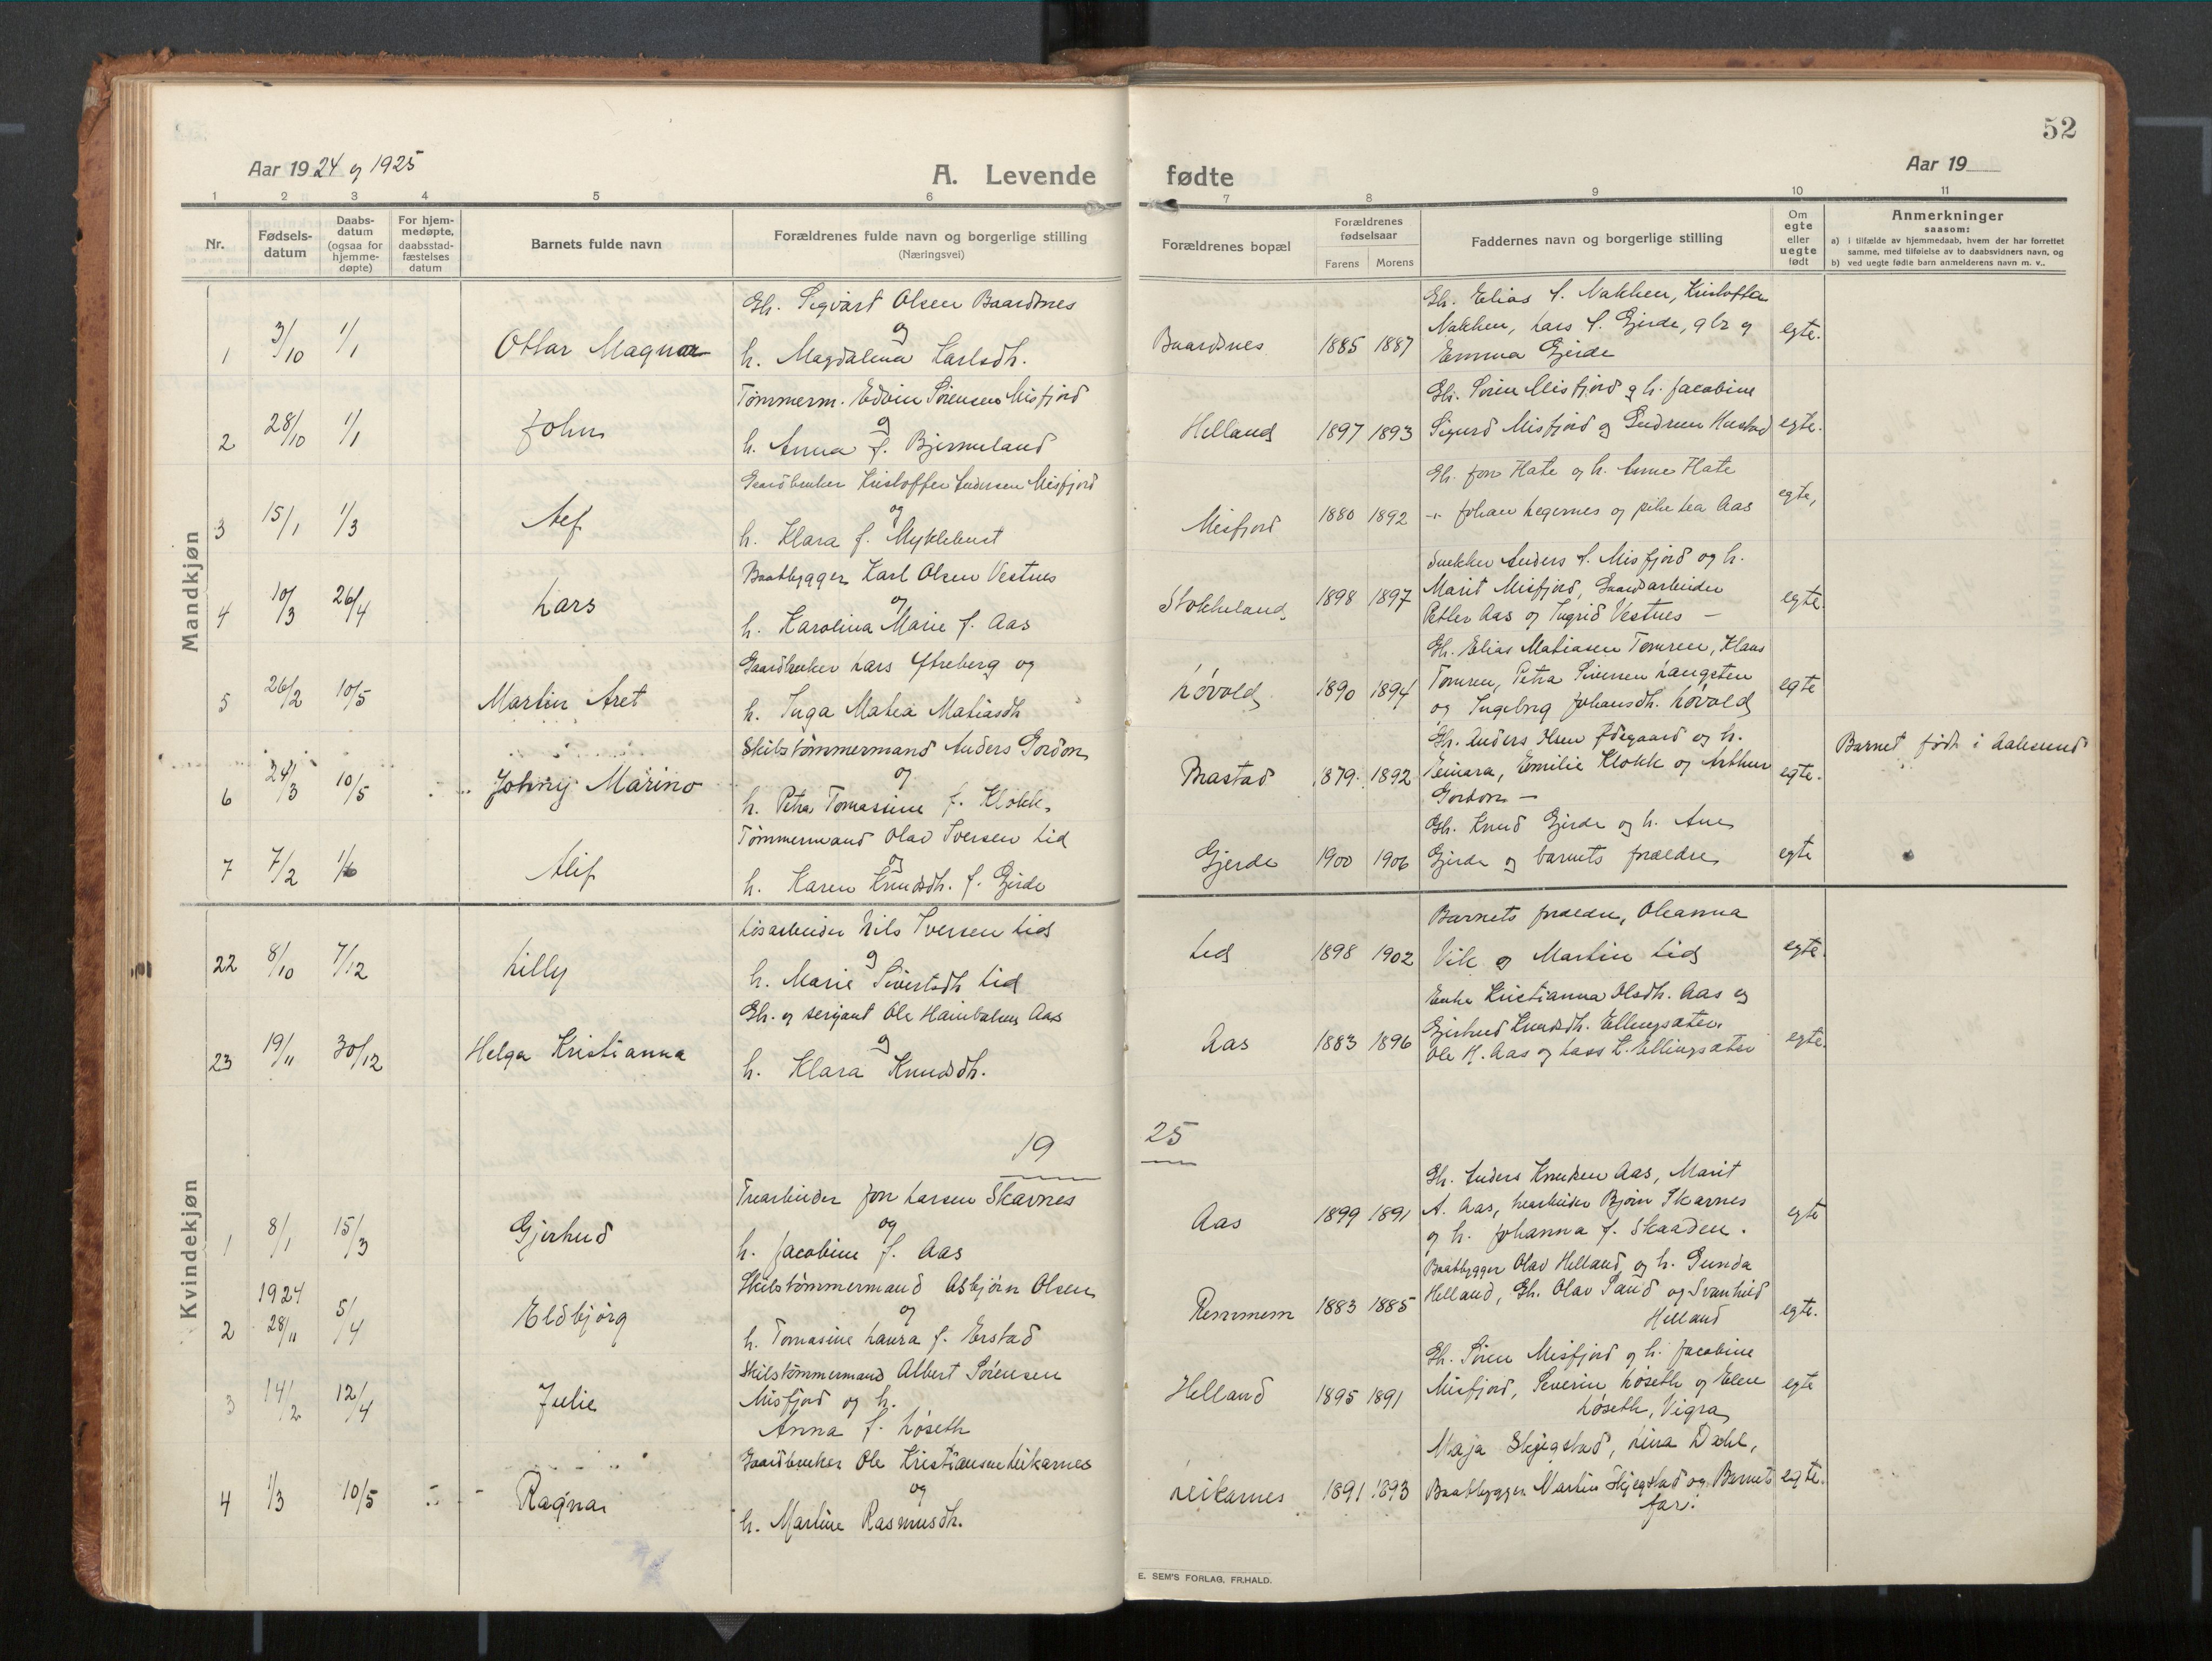 52
Aar 1924 og 1925
A. Levende fødte
Aar 19
1 2 3 4 5 6 7 8 9 10 11
Nr.
Fødsels-
datum
Daabs-
datum
(ogsaa for
hjemme-
døpte)
For hjem-
medøpte,
daabsstad-
fæstelses
datum
Barnets fulde navn
Forældrenes fulde navn og borgerlige stilling
(Næringsvei)
Forældrenes bopæl
Forældrenes
fødselsaar
Farens Morens
Faddernes navn og borgerlige stilling
Om
egte
eller
uegte
født
Anmerkninger
saasom:
a) i tilfælde av hjemmedaab, hvem der har forrettet
samme, med tilføielse av to daabsvidners navn, og
b) ved uegte fødte barn anmelderens navn m. v..
Mandkjøn
Gb. Sigvart Olsen Baardsnes
og
1 3/10 1/1 Ottar Magnar
h. Magdalena Karlsdh.
Baardsnes 1885 1887
Gb. Elias S. Nakken, Kristoffa
Nakken, Lars S. Gjerde, gbr og
Emma Gjerde
egte.
Tømmerm. Edvin Sørensen Misfjord
og
2 28/10 1/1 John
h. Anna f. Bjermeland
Helland 1897 1893
Gb. Søren Misfjord og h. Jacobine
Sigurd Misfjord og Gudrun Hustad
egte.
Gaardbruker Kristoffer Andersen Misfjord
og
3 15/1 1/3 Alf
h. Klara f. Myklebust
Misfjord 1880 1892
Gb. Jon Hate og h. Anne Hate
-"- Johan Legernes og pike Lea Aas
egte,
Baatbygger Karl Olsen Vestnes
og
4 10/3 26/4 Lars
h. Karolina Marie f. Aas
Stokkeland 1898 1897
Snekker Anders S. Misfjord og h.
Marit Misfjord, Gaardarbeider
Petter Aas og Ingrid Vestnes —
egte.
Gaardbruker Lars Ytreberg og
5 26/2 10/5 Martin Aret
h. Inga Matea Matiasdh
Løvold 1890 1894
Gb. Elias Matiasen Tomren, Klaus
Tomren, Petra Siversen Langsten
og Ingebrg Johansdh. Løvold
egte
Skibstømmermand Anders Gordon
og
6 24/3 10/5 Johny Marino
h. Petra Tomasine f. Klokk.
Brastad 1879 1892
Gb. Anders Olsen Ødegaard og h.
Einara, Emilie Klokk og Arthur
Gordon —
egte.
Barnet født i Aalesund
Tømmermand Olav Iversen Lid
og
7 7/2 1/6 Alif
h. Karen Knudsdh. f. Gjerde
Gjerde 1900 1906
Gb. Knud Gjerde og h. Ane
Gjerde og barnets forældre
egte
Kvindekjøn
Løsarbeider Nils Iversen Lid
og
22 8/10 7/12 Lilly
h. Marie Sivertsdh Lid
Lid 1898 1902
Barnets forældre, Oleanna
Vik og Martin Lid
egte.
Gb. og sersjant Ole Hansbalens Aas
og
23 19/11 30/12 Helga Kristianna
h. Klara Knudsdh.
Aas 1883 1896
Enke Kristianna Olsdh. Aas og
Gjerhud Knudsdh. Ellingsæter.
Ole H. Aas og Lars K. Ellingsæter
egte.
19 25
Træarbeider Jon Larsen Skarnes
og
1 8/1 15/3 Gjerhud
h. Jacobine f. Aas
Aas 1899 1891
Gb. Anders Knudsen Aas, Marit
A. Aas, træarbeider Bjørn Skarnes
og h. Johanna f. Skaaden.
egte
Skibstømmermand Asbjørn Olsen
og
1924
2 28/11 5/4 Eldbjørg
h. Tomasine Laura f. Erstad
Remmem 1883 1885
Baatbygger Olav Helland og h. Gunda
Helland, Gb. Olav Sand og Svanhild
Helland
egte.
Skibstømmermand Albert Sørensen
Misfjord og h.
3 14/2 12/4 Julie
Anna f. Løseth
Helland 1895 1891
Gb. Søren Misfjord og h. Jacobine
Misfjord, Severin Løseth og Elen
Løseth, Vigra
egte
Gaardbruker Ole Kristiansen Leikarnes
og
4 1/3 10/5 Ragna
h. Martine Rasmusdh.
Leikarnes 1891 1893
Maja Skjegstad, Lina Dahl,
Baatbygger Martin Skjegstad og Barnets
far.
egte.
E. SEM'S FORLAG, FR.HALD.